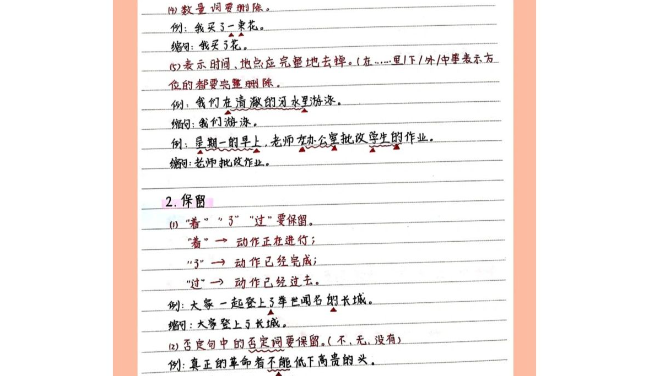 (4) 数量词要删除。
例：我买了一束花。
缩句：我买了花。
(5) 表示时间、地点应完整地去掉。(在……里/下/外/中等表示方
位的都要完整删除。
例：我们在清澈的河水里游泳。
缩句：我们游泳。
例：星期一的早上，老师在办公室批改学生的作业。
缩句：老师批改作业。
2. 保留
(1) “着”“了”“过”要保留。
“着”→ 动作正在进行；
“了”→ 动作已经完成；
“过”→ 动作已经过去。
例：大家一起登上了举世闻名的长城。
缩句：大家登上了长城。
(2) 否定句中的否定词要保留。(不、无、没有)
例：真正的革命者不能低下高贵的头。